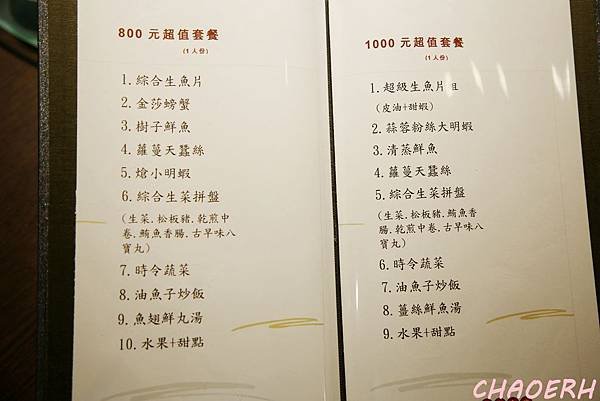 800 元超值套餐
(1人份)
1. 綜合生魚片
2. 金莎螃蟹
3. 樹子鮮魚
4. 蘿蔓天蠶絲
5. 熗小明蝦
6. 綜合生菜拼盤
(生菜.松板豬.乾煎中
卷.鮪魚香腸.古早味八
寶丸)
7. 時令蔬菜
8. 油魚子炒飯
9. 魚翅鮮丸湯
10. 水果+甜點
1000 元超值套餐
(1人份)
1. 超級生魚片
(皮油+甜蝦)
2. 蒜蓉粉絲大明蝦
3. 清蒸鮮魚
4. 蘿蔓天蠶絲
5. 綜合生菜拼盤
(生菜.松板豬.鮪魚香
腸.乾煎中卷.古早味八
寶丸)
6. 時令蔬菜
7. 油魚子炒飯
8. 薑絲鮮魚湯
9. 水果+甜點
CHAOERH